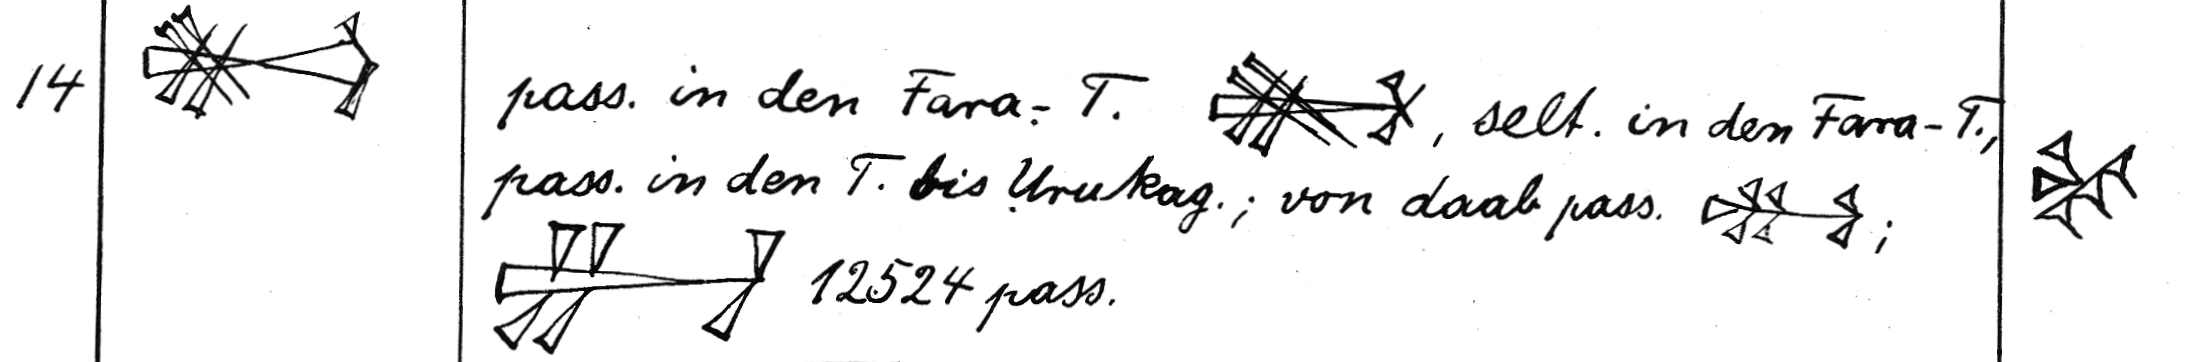 14
pass. in den Fara-T. , selt. in den Fara-T.,
pass. in den T. bis Urukag.; von daab pass. ;
12524 pass.